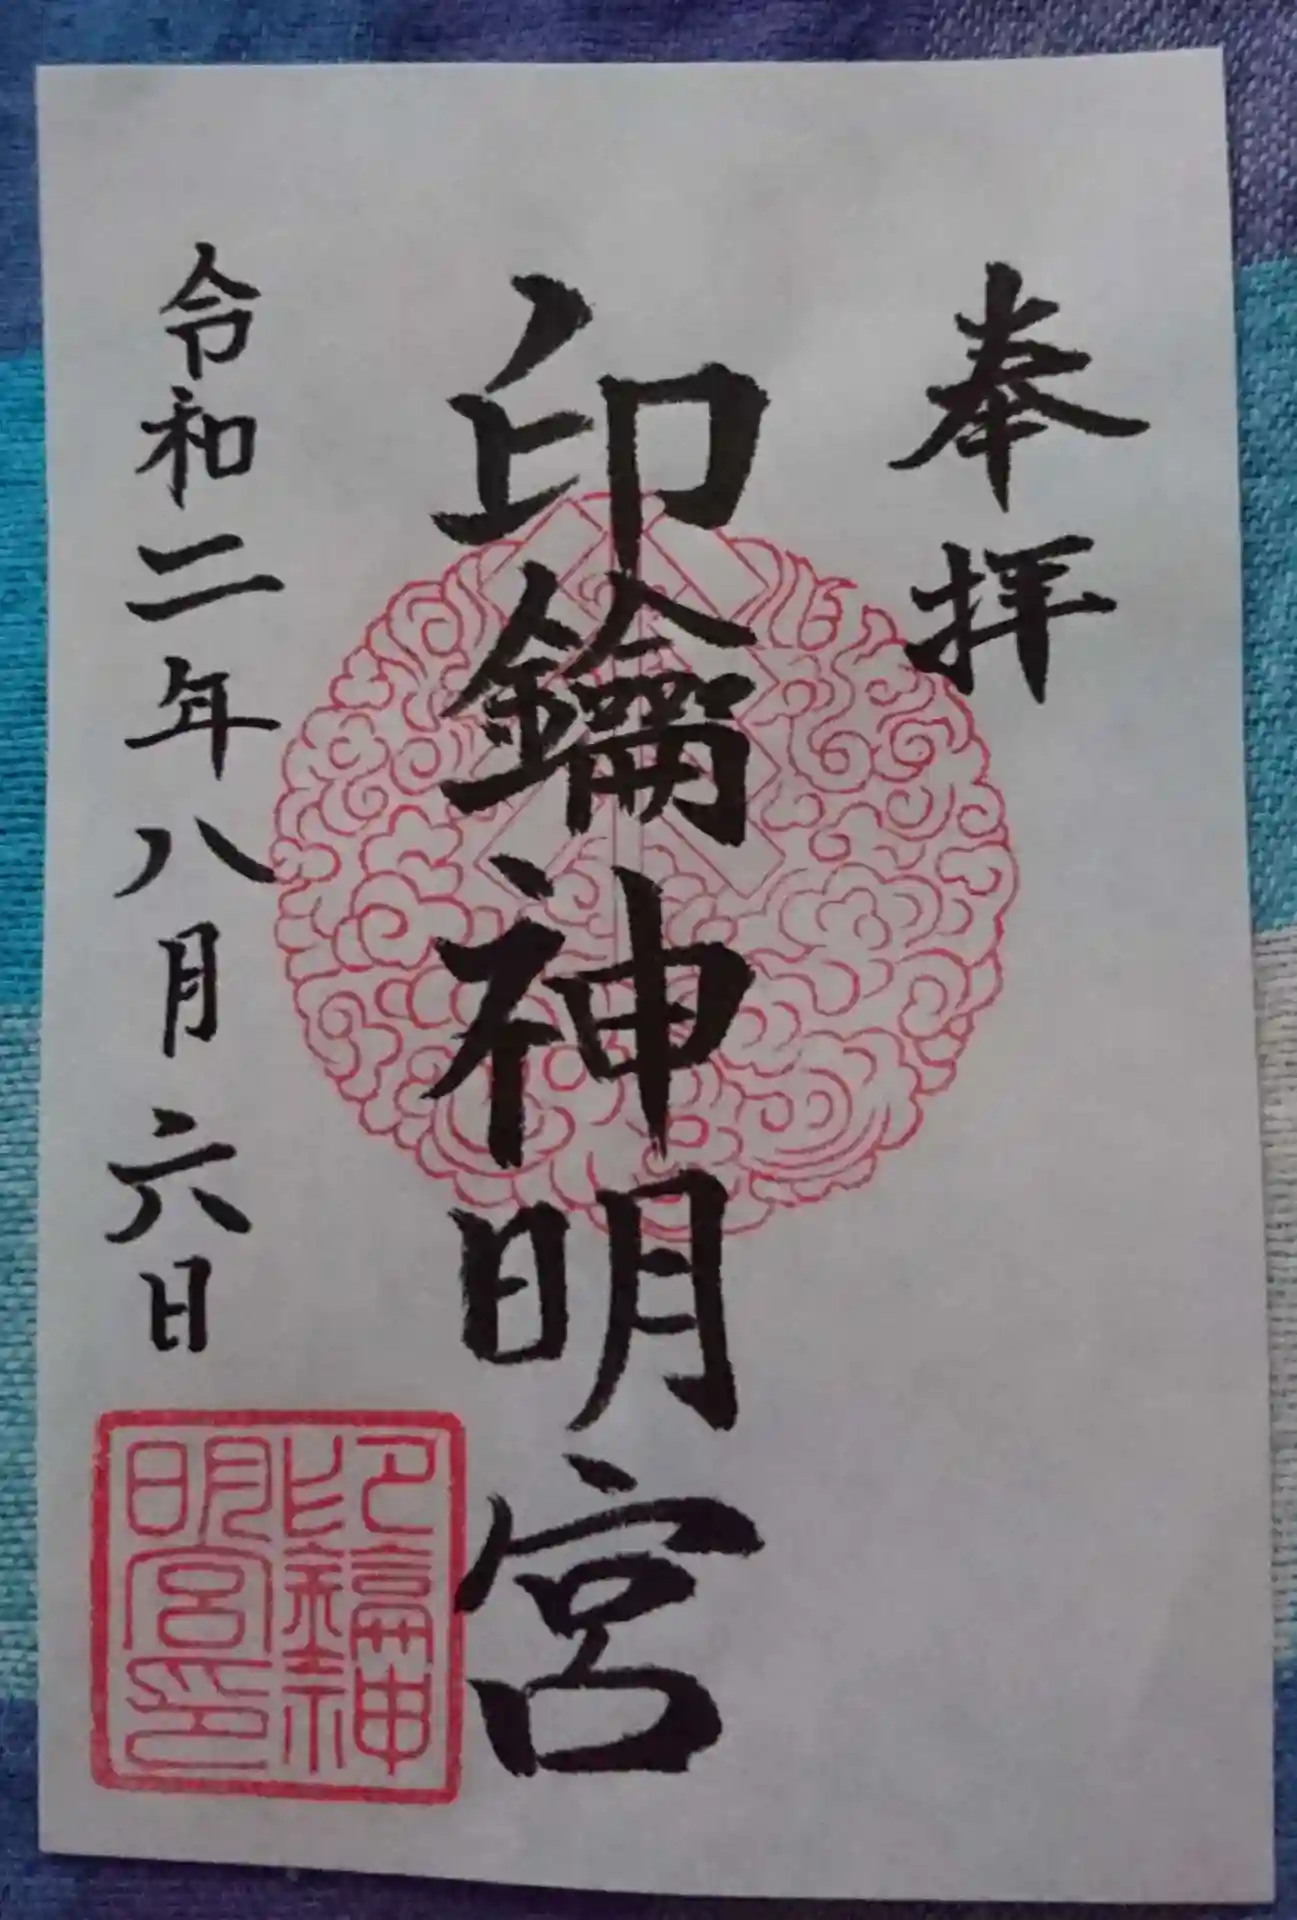 奉拝
印鑰神明宮
令和二年八月六日
印鑰神
明宮印